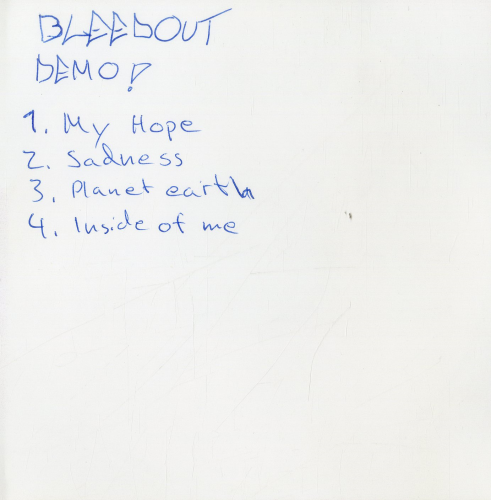 BLEEDOUT
DEMO!
1. My Hope
2. Sadness
3. Planet earth
4. Inside of me